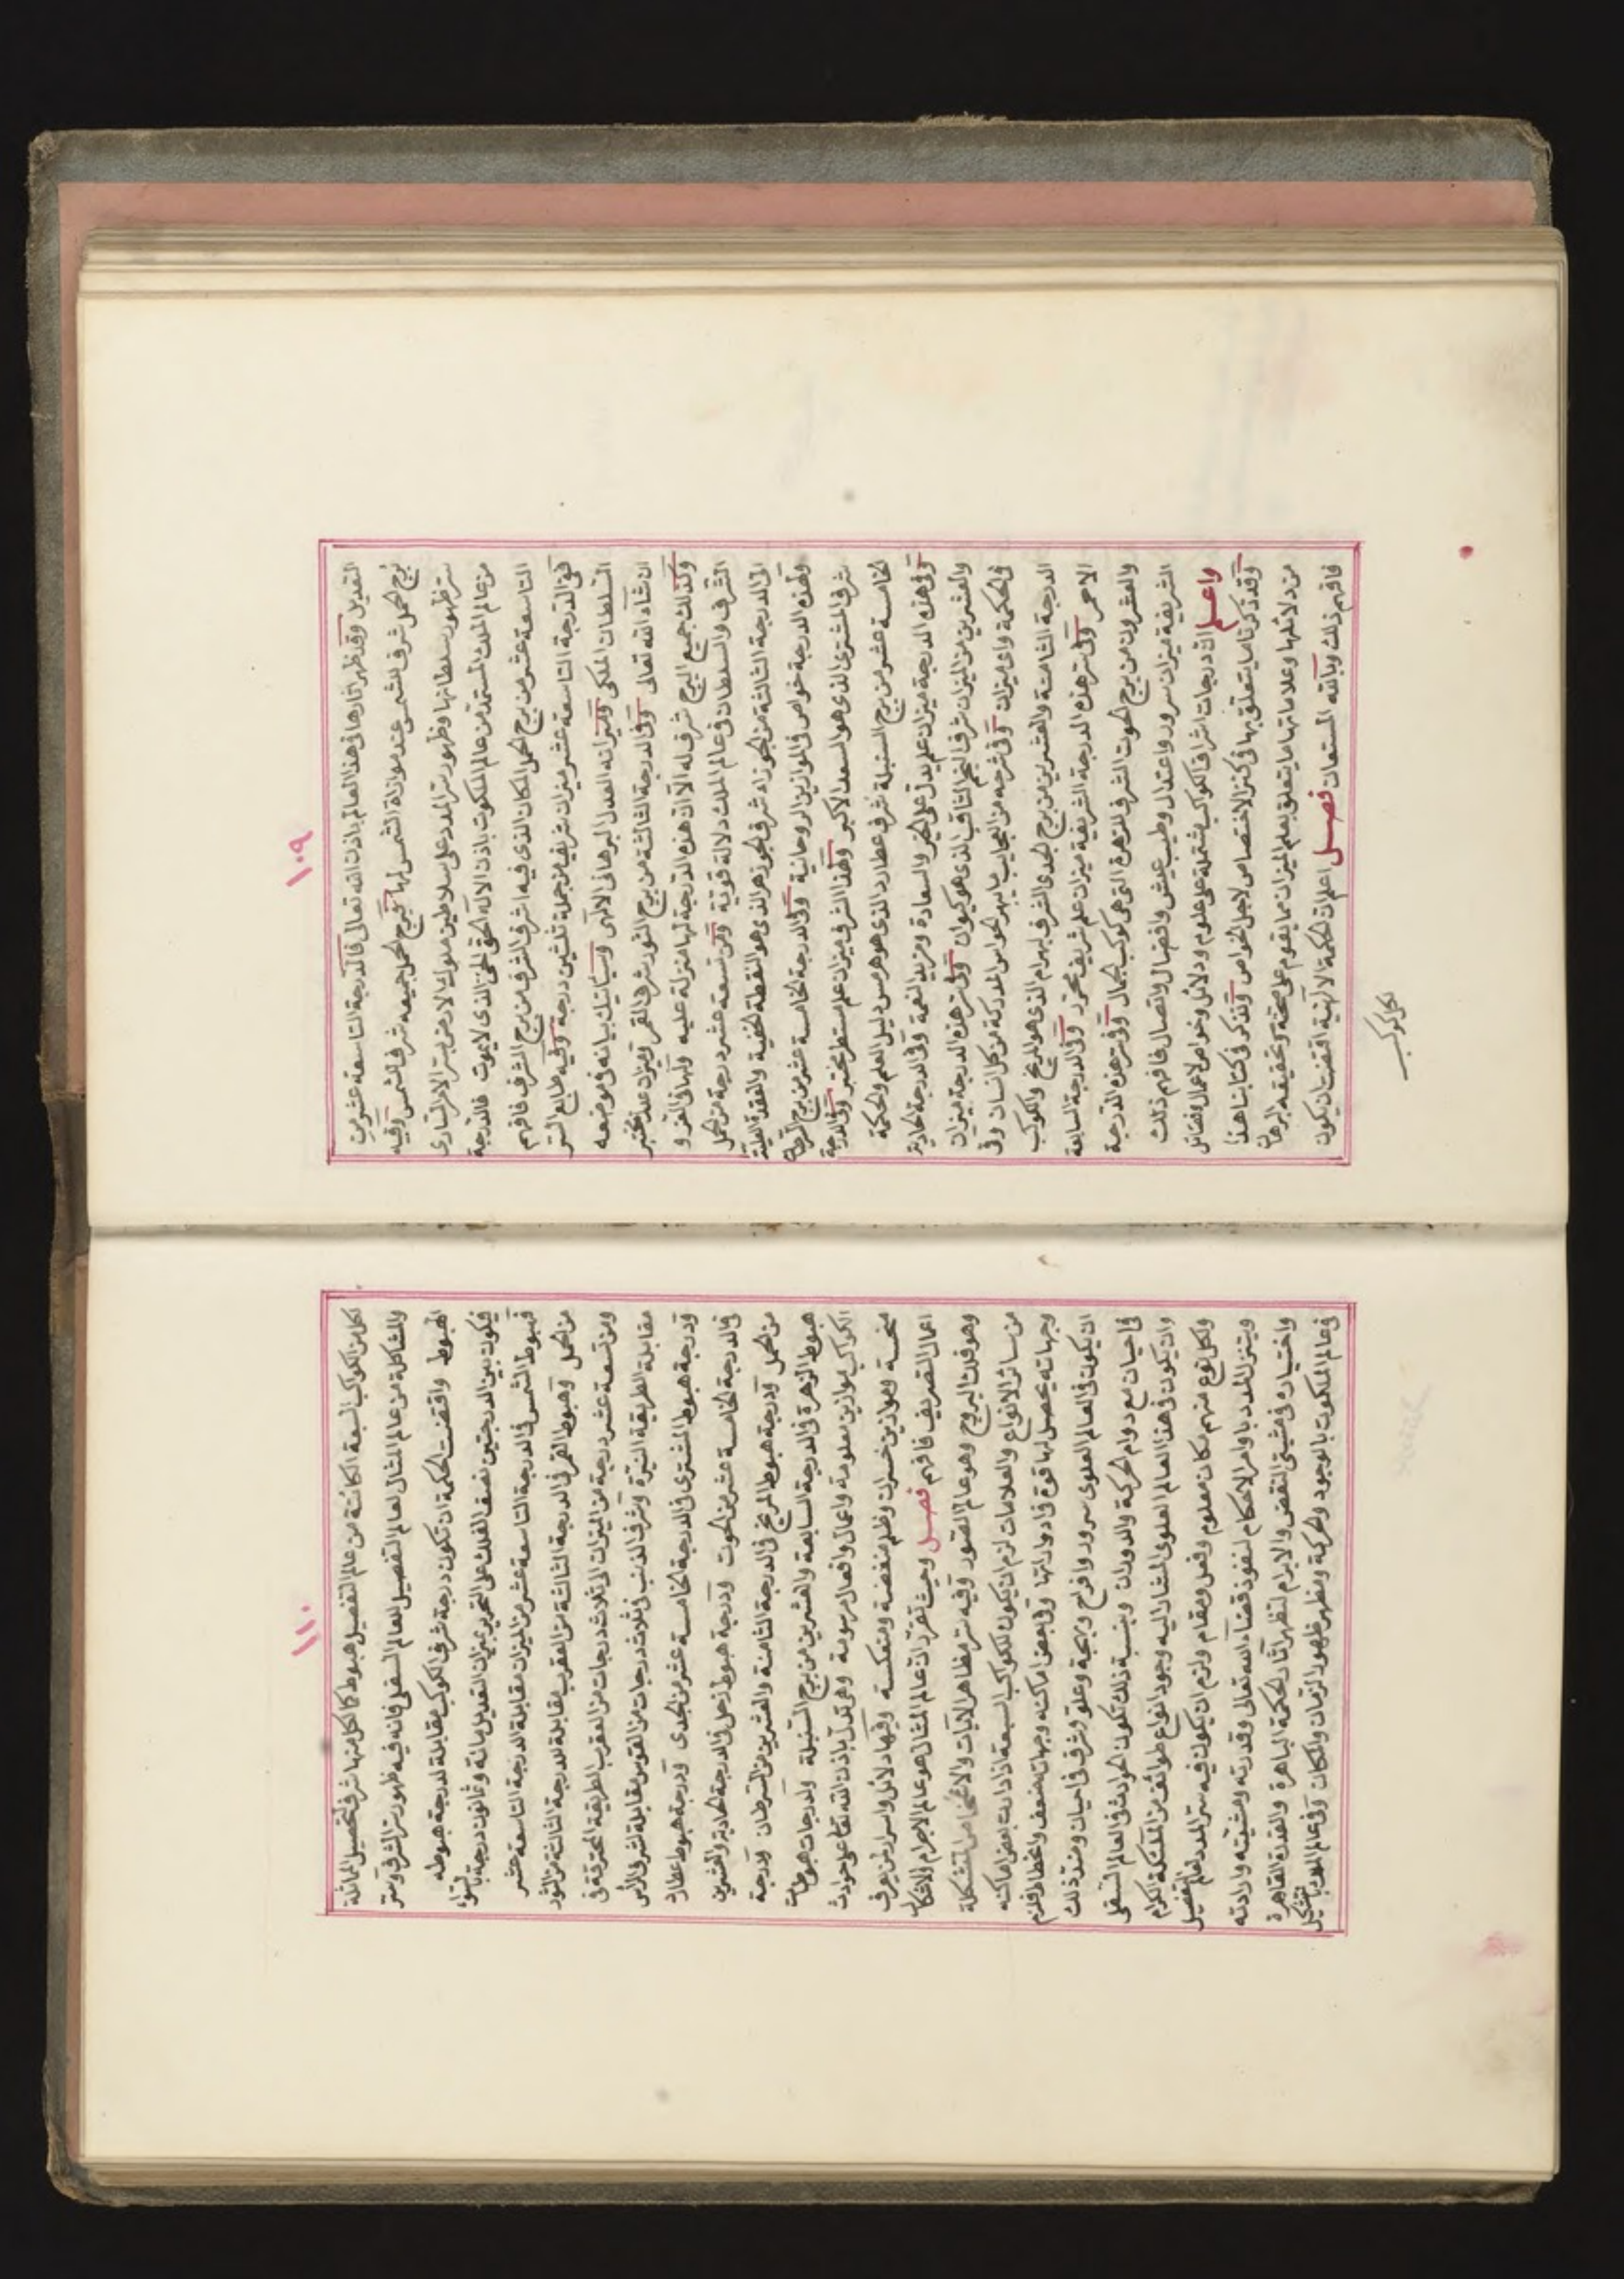 ١٠٩
التعديل وقد ظهر اثارها فى هذا العالم باذن الله تعالى فالدرجة التاسعة عشر من
برج الحمل شرف الشمس عند موازاة الشمس لها فبرج الحمل جميعه شرف الشمس وفيه
ستر ظهور سلطانها وظهور ستر المدد على سلاطين ملوك الارض بستر الامر السارى
من عالم الملك المستمد من عالم الملكوت باذن الاله الحق الحى الذى لا يموت فالدرجة
التاسعة عشر من برج الحمل المكان الذى فيه اشرف الشرف من برج الشرف فافهم
ففى الدرجة التاسعة عشر ميزان شريف من جملة ثلثين درجة وفيه طالع الستر
السلطان الملكى وميزانه العدل البرهانى الالهى وسيأتيك بيانه فى موضعه
ان شاء الله تعالى وفى الدرجة الثالثة من برج الثور شرف القمر وميزان عدل مختبر
وكذلك جميع البرج شرف له الا ان هذه الدرجة لها منزلة عليه ولها فى العز و
الشرف والسلطان فى عالم الملك دلالة قوية ومن تسعة عشر درجة من الحمل
الى الدرجة الثالثة من الجوزاء شرف الجوزهر الذى هو النقطة الخفية والعقدة العلية
ولهذه الدرجة خواص فى الموازين الروحانية وفى الدرجة الخامسة عشر من برج السرطان
شرف المشترى الذى هو السعد الاكبر وهذا الشرف ميزان علم مستطر مختبر وفى الدرجة
الخامسة عشر من برج السنبلة شرف عطارد الذى هو هرمس دليل العلم والحكمة
وفى هذه الدرجة ميزان علم يدل على الخير والسعادة ومزيد النعمة وفى الدرجة الحادية
والعشرين من الميزان شرف النجم الثاقب الذى هو كيوان وفى ستر هذه الدرجة ميزان
فى الحكمة واى ميزان وفى شرحه من العجايب ما يبهر الحواس المدركة من كل انسان وفى
الدرجة الثامنة والعشرين من برج الجدى الشرف لبهرام الذى هو المريخ والكوكب
الاحمر وفى ستر هذه الدرجة الشريفة ميزان علم شريف محرر وفى الدرجة السابعة
والعشرون من برج الحوت الشرف للزهرة التى هى كوكب الجمال وفى ستر هذه الدرجة
الشريفة ميزان سرور واعتدال وطيب عيش وافضال واتصال فافهم ذلك
واعلم ان درجات اشراف الكواكب مشتملة على علوم ودلائل وخواص لاعمال وفضائل
وقد ذكرنا ما يتعلق بها فى كنز الاختصاص لاجل الخواص ونذكر فى كتابنا هذا
من دلائلها وعلاماتها ما يتعلق بعلم الميزان ما يقوم على صحته وتحقيقه البرهان
فافهم ذلك وبالله المستعان فصل اعلم ان الحكمة الالهية اقتضت ان يكون
لكل كوكب
١١٠
لكل من الكواكب السبعة الكائنة من عالم التفصيل هبوط كما لكل منها شرف لتحصيل المماثلة
والمشاكلة من عالم المثال لعالم التفصيل لعالم السفلى فانه فيه ظهور ستر الشرف وستر
الهبوط واقتضت الحكمة ان تكون درجة شرف الكوكب مقابلة لدرجة هبوطه
فيكون بين الدرجتين نصف الفلك على التحرير بميزان التعديل مائة وثمانون درجة بالسواء
فهبوط الشمس فى الدرجة التاسعة عشر من الميزان مقابلة الدرجة التاسعة عشر
من الحمل وهبوط القمر فى الدرجة الثالثة من العقرب مقابلة للدرجة الثالثة من الثور
ومن تسعة عشر درجة من الميزان الى ثلاث درجات من العقرب الطريقة المحترقة فى
مقابلة الطريقة النيرة وشرف الذنب فى ثلاث درجات من القوس مقابلة شرف الراس
ودرجة هبوط المشترى فى الدرجة الخامسة عشر من الجدى ودرجة هبوط عطارد
فى الدرجة الخامسة عشر من الحوت ودرجة هبوط زحل فى الدرجة الحادية والعشرين
من الحمل ودرجة هبوط المريخ فى الدرجة الثامنة والعشرين من السرطان ودرجة
هبوط الزهرة فى الدرجة السابعة والعشرين من برج السنبلة ولدرجات هبوطات
الكواكب موازين معلومة واعمال وافعال مرسومة وهى تدل باذن الله تعالى على حوادث
منحسة وموازين خسران وظلم منغصة ومنعكسة وفيها دلائل واسرار لمن يعرف
اعمال التصريف فافهم فصل وحيث تقرر ان عالم المثال هو عالم الاجرام والاشكال
وهو فلك البروج وهو عالم الصور وفيه ستر مظاهر الآيات والاشخاص المتشكلة
من سائر الانواع والعلامات لزم ان يكون للكواكب السبعة اذا دارت بعض اماكنه
وجهاته يحصل لها قوة فى ادوارها وفى بعض اماكنه وجهاته ضعف وانحطاط فلزم
ان يكون فى العالم العلوى سرور وافراح وبهجة وعلو وشرف فى احيان وضد ذلك
فى احيان مع دوام الحركة والدوران وبنسبة ذلك تكون الحوادث فى العالم السفلى
وان يكون فى هذا العالم العلوى المشار اليه وجود انواع طوائف من الملائكة الكرام
ولكل نوع منهم مكان معلوم وفعل ومقام ولزم ان يكون فيه ستر المدد لعالم التفصيل
ويتنزل المدد باوامر الاحكام لنفوذ قضاء الله تعالى وقدرته ومشيئته وارادته
واختياره فى مشيئتى النقض والابرام لتظهر آثار الحكمة الباهرة والقدرة القاهرة
فى عالم الملكوت بالوجود والحركة ومظهر ظهور الزمان والمكان وفى عالم بالتشكيل